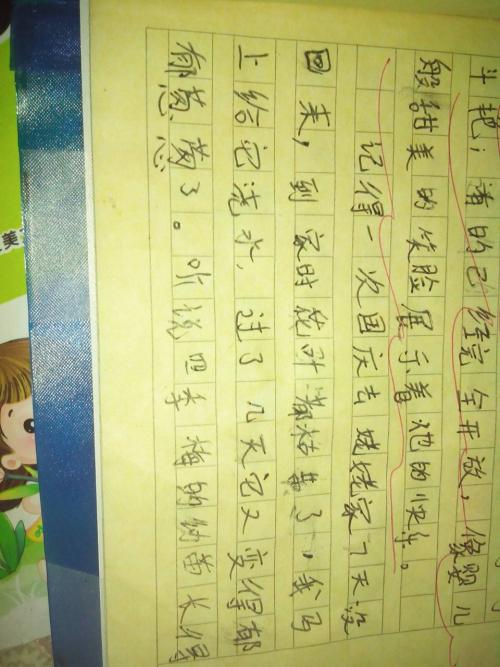 斗艳；有的已经完全开放，像婴儿
般甜美的笑脸展示着她的快乐。
记得一次国庆去姥姥家7天没
回来，到家时花叶都枯黄了，我马
上给它浇水，过了几天它又变得郁
郁葱葱了。听说四季梅的幼苗长得
美